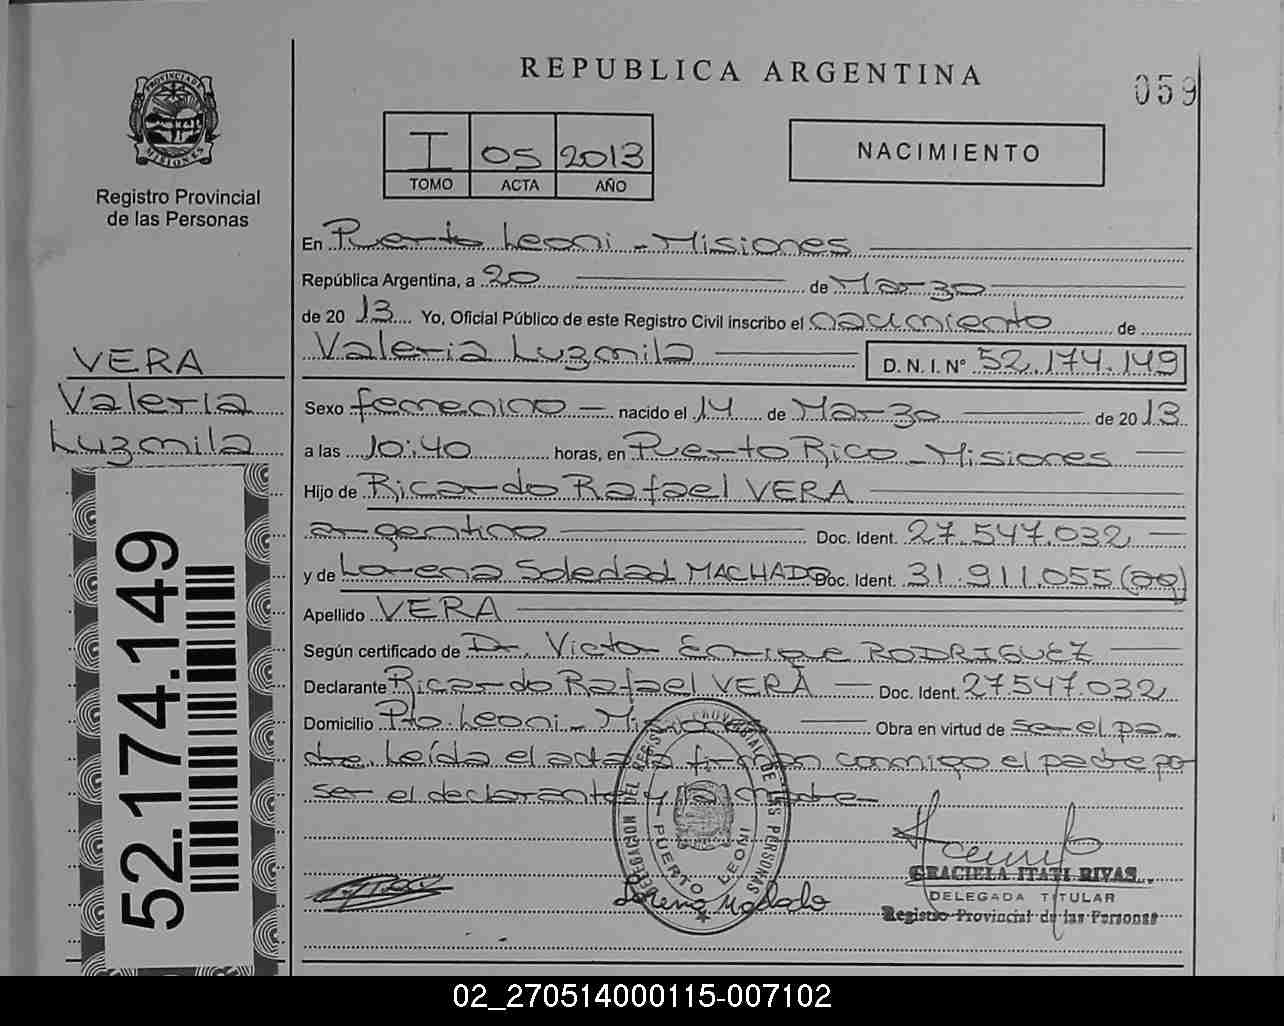 REPUBLICA ARGENTINA
059
PROVINCIA DE MISIONES
Registro Provincial
de las Personas
I 05 2013
TOMO ACTA AÑO
NACIMIENTO
En Puerto Leoni - Misiones
República Argentina, a 20 de Marzo
de 20 13 Yo, Oficial Público de este Registro Civil inscribo el nacimiento de
Valeria Luzmila D. N. I. Nº 52.174.149
VERA
Valeria
Luzmila
Sexo femenino nacido el 14 de Marzo de 20 13
a las 10:40 horas, en Puerto Rico - Misiones
Hijo de Ricardo Rafael VERA
argentino Doc. Ident. 27.547.032
y de Lorena Soledad MACHADO Doc. Ident. 31.911.055 (ag)
Apellido VERA
Según certificado de Dr. Victor Enrique RODRIGUEZ
Declarante Ricardo Rafael VERA Doc. Ident. 27.547.032
Domicilio Pto. Leoni - Misiones Obra en virtud de ser el pa
dre. Leída el acta la firman conmigo el padre por
ser el declarante y la madre
52.174.149
DELEGACION DEL REGISTRO PROVINCIAL DE LAS PERSONAS
PUERTO LEONI
Lorena Machado
GRACIELA ITATI RIVAS
DELEGADA TITULAR
Registro Provincial de las Personas
02_270514000115-007102